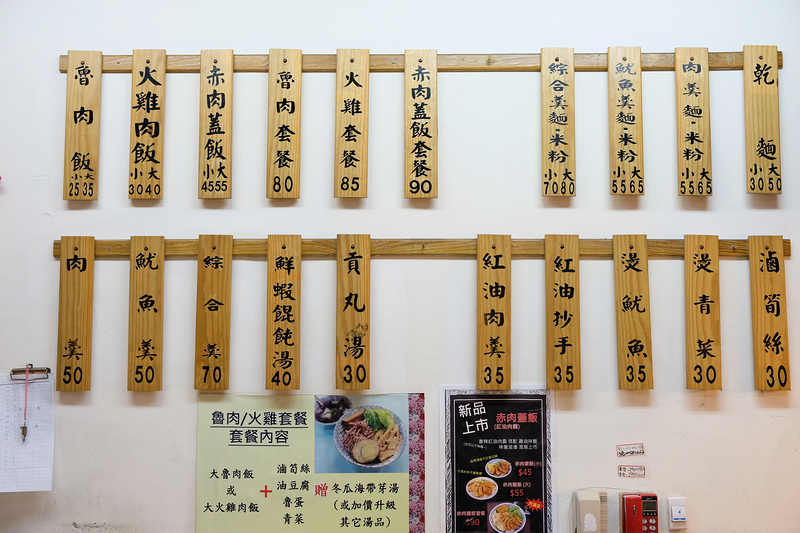 魯肉飯 小25 大35
火雞肉飯 小30 大40
赤肉蓋飯 小45 大55
魯肉套餐 80
火雞套餐 85
赤肉蓋飯套餐 90
綜合羹麵·米粉 小70 大80
魷魚羹麵·米粉 小55 大65
肉羹麵·米粉 小55 大65
乾麵 小30 大50
肉羹 50
魷魚羹 50
綜合羹 70
鮮蝦餛飩湯 40
貢丸湯 30
紅油肉羹 35
紅油抄手 35
燙魷魚 35
燙青菜 30
滷筍絲 30
魯肉/火雞套餐
套餐內容
大魯肉飯
或
大火雞肉飯
+
滷筍絲
油豆腐
魯蛋
青菜
贈
冬瓜海帶芽湯
(或加價升級
其它湯品)
新品
上市
赤肉蓋飯
(紅油肉羹)
赤肉蓋飯(小)
$45
赤肉蓋飯(大)
$55
赤肉蓋飯套餐
$90